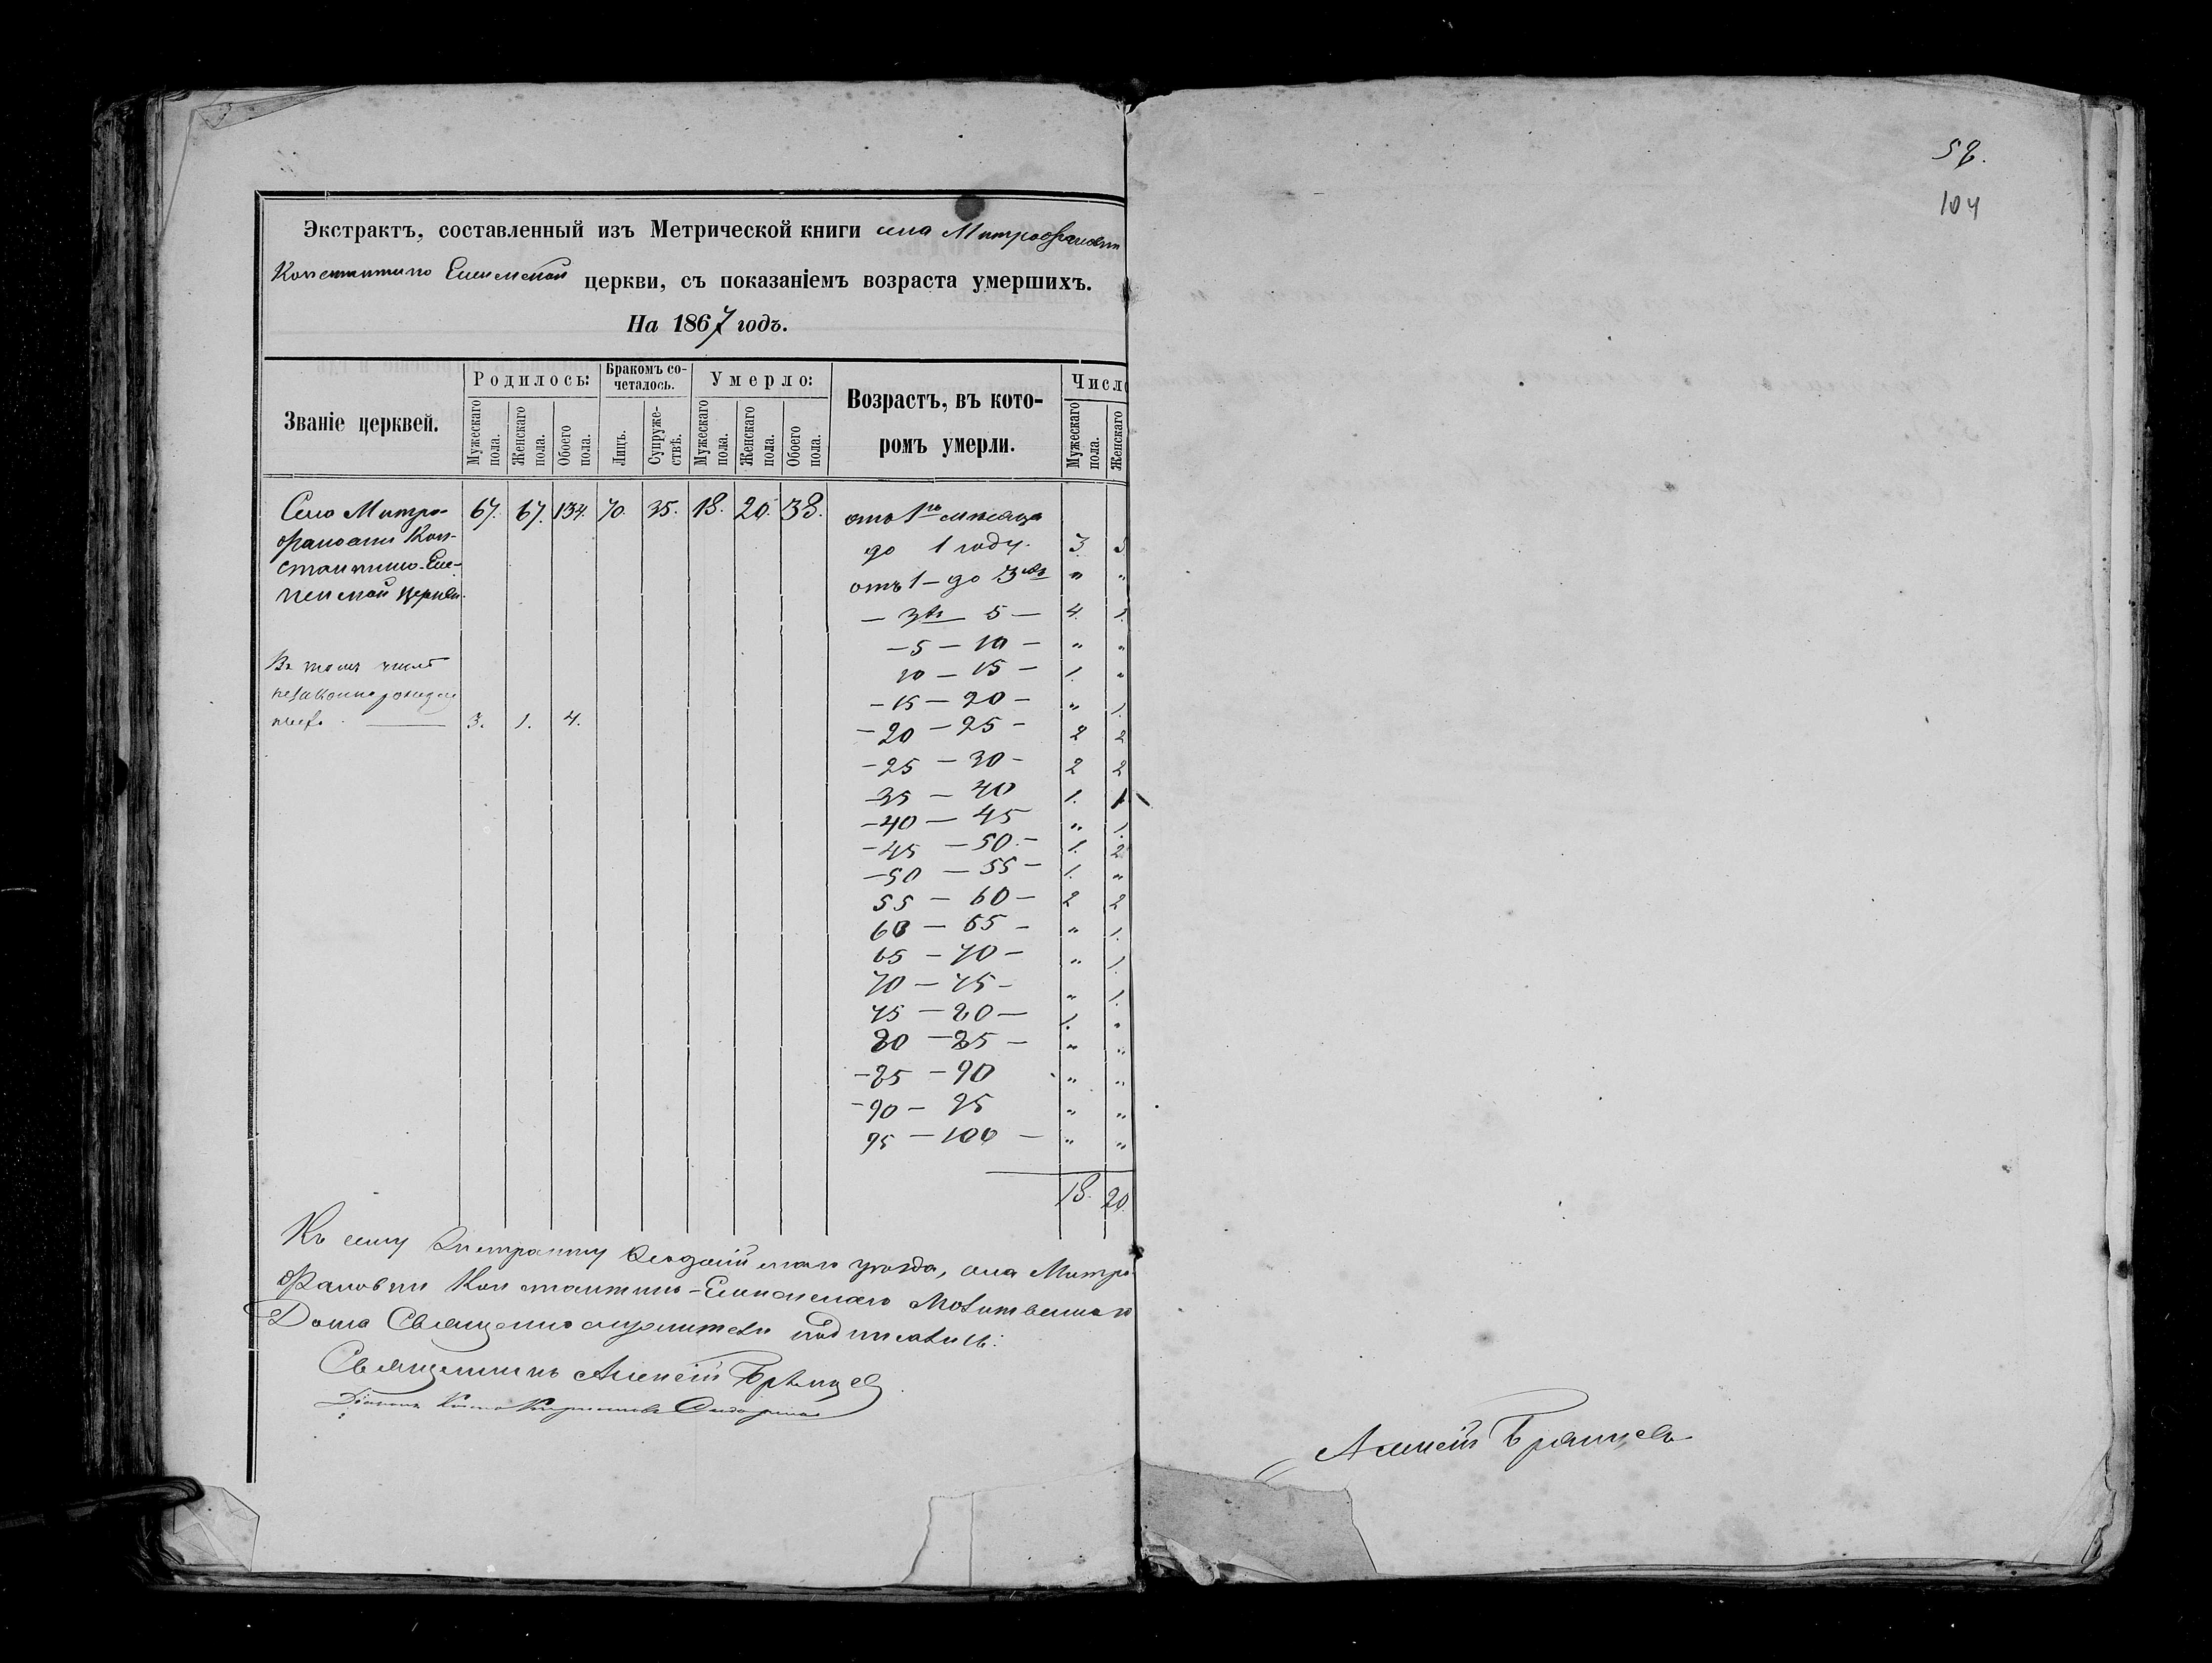 Экстрактъ, составленный изъ Метрической книги села Митрофановки
Константино Еленской церкви, съ показаніемъ возраста умершихъ.
На 1867 годъ.
Званіе церквей.
Родилось:
Мужескаго пола.
Женскаго пола.
Обоего пола.
Бракомъ сочеталось.
Лицъ.
Супружествъ.
Умерло:
Мужескаго пола.
Женскаго пола.
Обоего пола.
Возрастъ, въ которомъ умерли.
Число
Мужескаго пола.
Женскаго
Село Митро- 67. 67. 134. 70. 35. 18. 20. 38. отъ 1го мѣсяца
фановки Кон- до 1 году. 3.
стантино-Еле- отъ 1 – до 3 „ „
ненской церкви.
— 5 — 4. 1.
– 5 – 10 – „ „
Въ томъ числѣ
10 – 15 – 1. „
незаконнорожден
– 15 – 20 – „ 1.
ныхъ — 3. 1. 4.
– 20 – 25 – 2 2
– 25 – 30 – 2 2
– 35 – 40 1. 1
– 40 – 45 „ 1.
– 45 – 50. – 1. 2
– 50 – 55 – 1. „
55 – 60 – 2 2
60 – 65 – „ 1.
65 – 70 – „ 1.
70 – 75 – „ 1.
75 – 80 – 1. „
80 – 85 – „ „
– 85 – 90 „ „
– 90 – 95 „ „
95 – 100 – „ „
18. 20.
Къ сему Экстракту уѣзда, села Митро-
фановки Константино-Еленскаго Молитвеннаго
Дома Священнослужители подписались:
Священникъ Алексій Брянцев
104
Алексій Брянцевъ